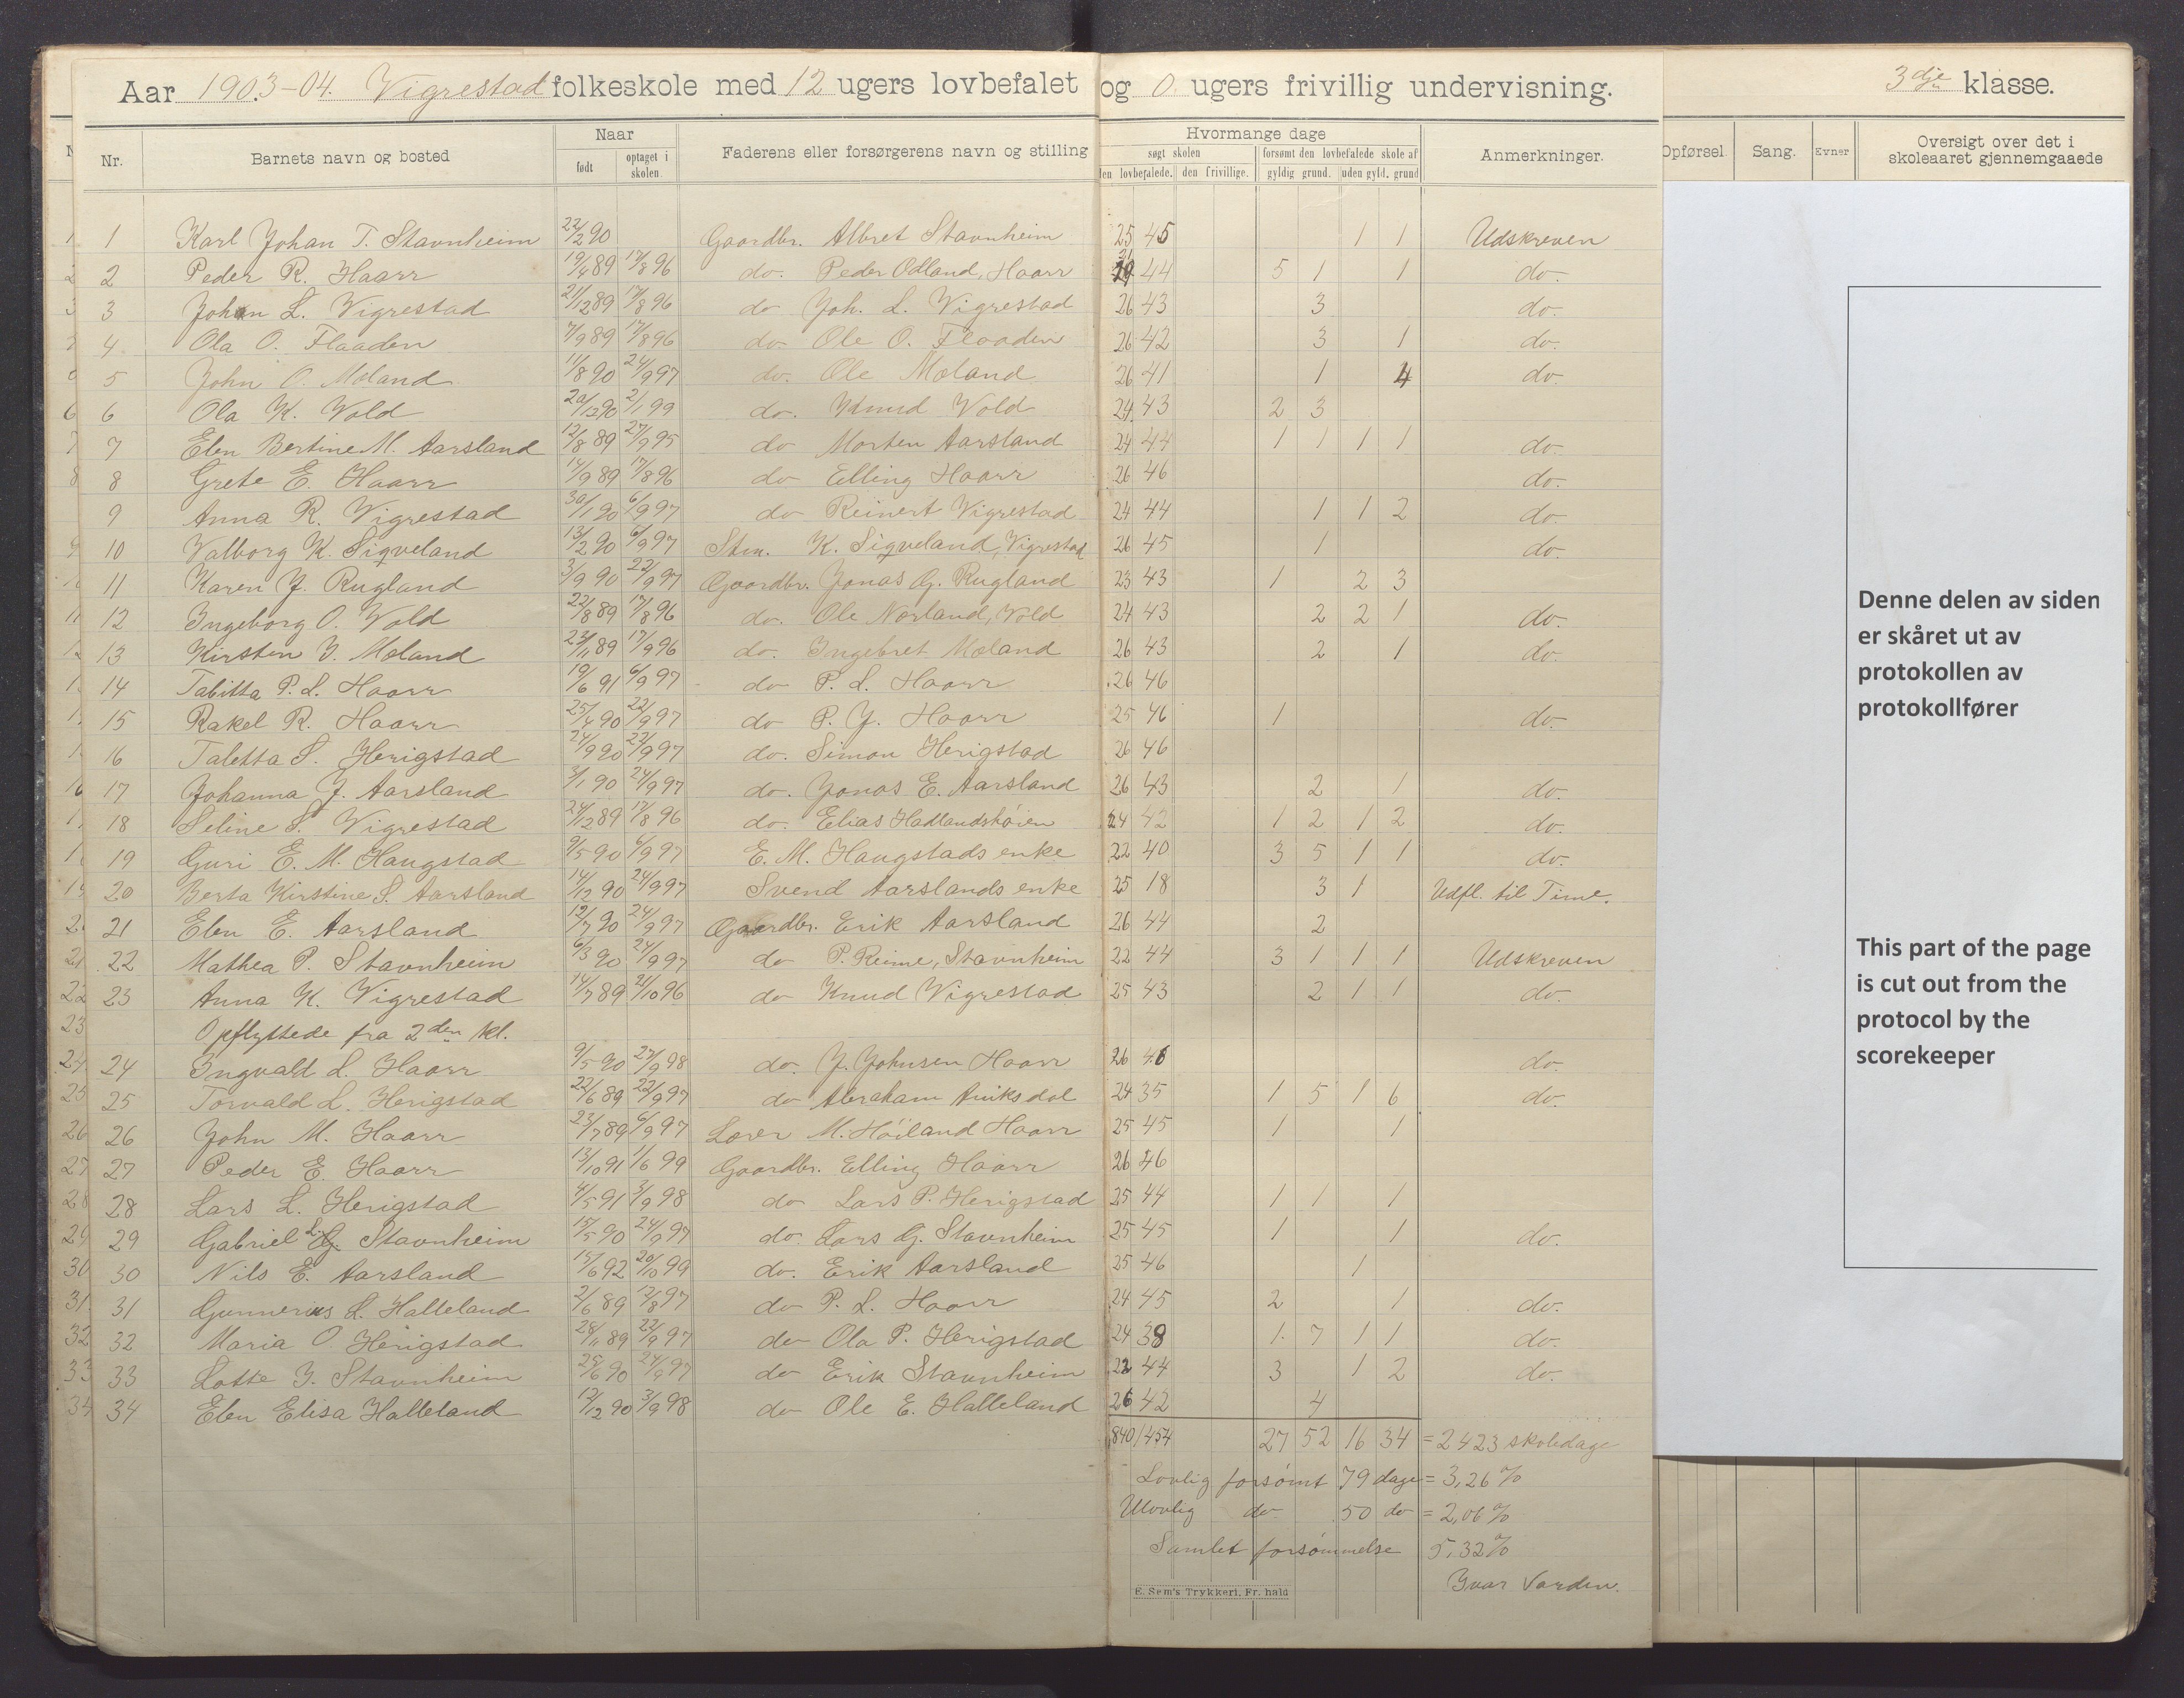 Aar 1903-04. Vigrestad folkeskole med 12 ugers lovbefalet og 0 ugers frivillig undervisning. 3dje klasse.
Nr. Barnets navn og bosted Naar født optaget i skolen. Faderens eller forsørgerens navn og stilling Hvormange dage søgt skolen den lovbefalede. den frivillige. forsømt den lovbefalede skole af gyldig grund. uden gyld. grund Anmerkninger. Opførsel. Sang. Evner Oversigt over det i skoleaaret gjennemgaaede
1 Karl Johan T. Stavnheim 22/2 90 Gaardbr. Albret Stavnheim 25 45 1 1 Udskreven
2 Peder R. Haarr 19/4 89 17/8 96 do. Peder Odland, Haarr 44 5 1 1 do.
3 Johan L. Vigrestad 21/12 89 17/8 96 do Joh. L. Vigrestad 26 43 3 do.
4 Ola O. Flaaden 7/9 89 17/8 96 do Ole O. Flaaden 26 42 3 1 do.
5 John O. Moland 11/8 90 24/9 97 do. Ole Moland 26 41 1 4 do.
6 Ola K. Vold 20/12 90 2/1 99 do. Knud Vold 24 43 2 3
7 Elen Bertine M. Aarsland 12/8 89 27/9 95 do Morten Aarsland 24 44 1 1 1 1 do.
8 Grete E. Haarr 14/9 89 17/8 96 do Elling Haarr 26 46 do.
9 Anna R. Vigrestad 30/1 90 6/9 97 do Reinert Vigrestad 24 44 1 1 2 do.
10 Valborg K. Sigveland 13/2 90 6/9 97 Stm. K. Sigveland, Vigrestad 26 45 1 do.
11 Karen J. Rugland 3/9 90 22/9 97 Gaardbr. Jonas G. Rugland 23 43 1 2 3
12 Ingeborg O. Vold 22/8 89 17/8 96 do. Ole Norland, Vold 24 43 2 2 1 do.
13 Kirsten I. Moland 23/1 89 17/9 96 do. Ingebret Moland 26 43 2 1 do.
14 Tabitta P. L. Haarr 19/6 91 6/9 97 do P. L. Haarr 26 46
15 Rakel R. Haarr 25/4 90 22/9 97 do P. J. Haarr 25 46 1 do.
16 Taletta S. Herigstad 24/9 90 22/9 97 do. Simon Herigstad 26 46
17 Johanna J. Aarsland 3/1 90 24/9 97 do. Jonas E. Aarsland 26 43 2 1 do.
18 Seline S. Vigrestad 24/12 89 17/8 96 do. Elias Hadlandshøien 24 42 1 2 1 2 do.
19 Guri E. M. Haugstad 9/5 90 6/9 97 E. M. Haugstads enke 22 40 3 5 1 1 do.
20 Berta Kirstine S. Aarsland 14/12 90 24/9 97 Svend Aarslands enke 25 18 3 1 Udfl. til Time.
21 Elen E. Aarsland 12/7 90 24/9 97 Gaardbr. Erik Aarsland 26 44 2
22 Mathea P. Stavnheim 6/3 90 24/9 97 do P. Reime, Stavnheim 22 44 3 1 1 1 Udskreven
23 Anna K. Vigrestad 14/7 89 21/10 96 do Knud Vigrestad 25 43 2 1 1 do.
Opflyttede fra 2den kl.
24 Ingvald L. Haarr 9/5 90 27/9 98 do. J. Johnsen Haarr 26 46 do.
25 Torvald L. Herigstad 22/6 89 22/9 97 do Abraham Aniksdal 24 35 1 5 1 6 do.
26 John M. Haarr 23/7 89 6/9 97 Lærer M. Høiland Haarr 25 45 1 1
27 Peder E. Haarr 13/10 91 1/6 99 Gaardbr. Elling Haarr 26 46
28 Lars L. Herigstad 4/5 91 3/9 98 do Lars P. Herigstad 25 44 1 1 1
29 Gabriel L. G. Stavnheim 15/5 90 24/9 97 do. Lars G. Stavnheim 25 45 1 1 do.
30 Nils E. Aarsland 15/6 92 20/10 99 do. Erik Aarsland 25 46 1
31 Gunnerius L. Halleland 2/6 89 12/8 97 do P. L. Haarr 24 45 2 1 do.
32 Maria O. Herigstad 28/11 89 22/9 97 do Ola P. Herigstad 24 38 1 7 1 1 do.
33 Lotte I. Stavnheim 25/6 90 24/9 97 do Erik Stavnheim 22 44 3 1 2 do.
34 Elen Elisa Halleland 12/12 90 3/9 98 do Ole E. Halleland 26 42 4
840/1454 27 52 16 34 = 2423 skoledage
Lovlig forsømt 79 dage = 3,26 %
Ulovlig do 50 do = 2,06 %
Samlet forsømmelse 5,32 %
Ivar Varden.
E. Sem's Trykkeri, Fr. hald
Denne delen av siden
er skåret ut av
protokollen av
protokollfører
This part of the page
is cut out from the
protocol by the
scorekeeper